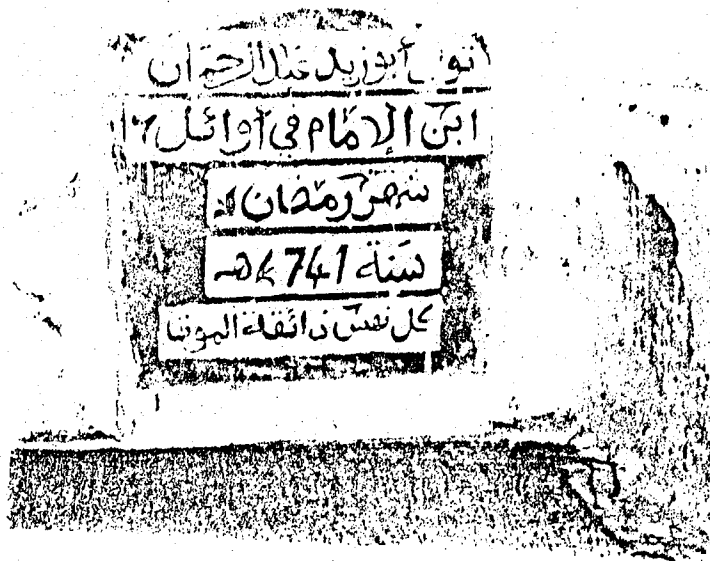 أبوزيد عبد الرحمان
ابن الإمام في أوائل
شهر رمضان
سنة 741 هـ
كل نفس ذائقة الموت